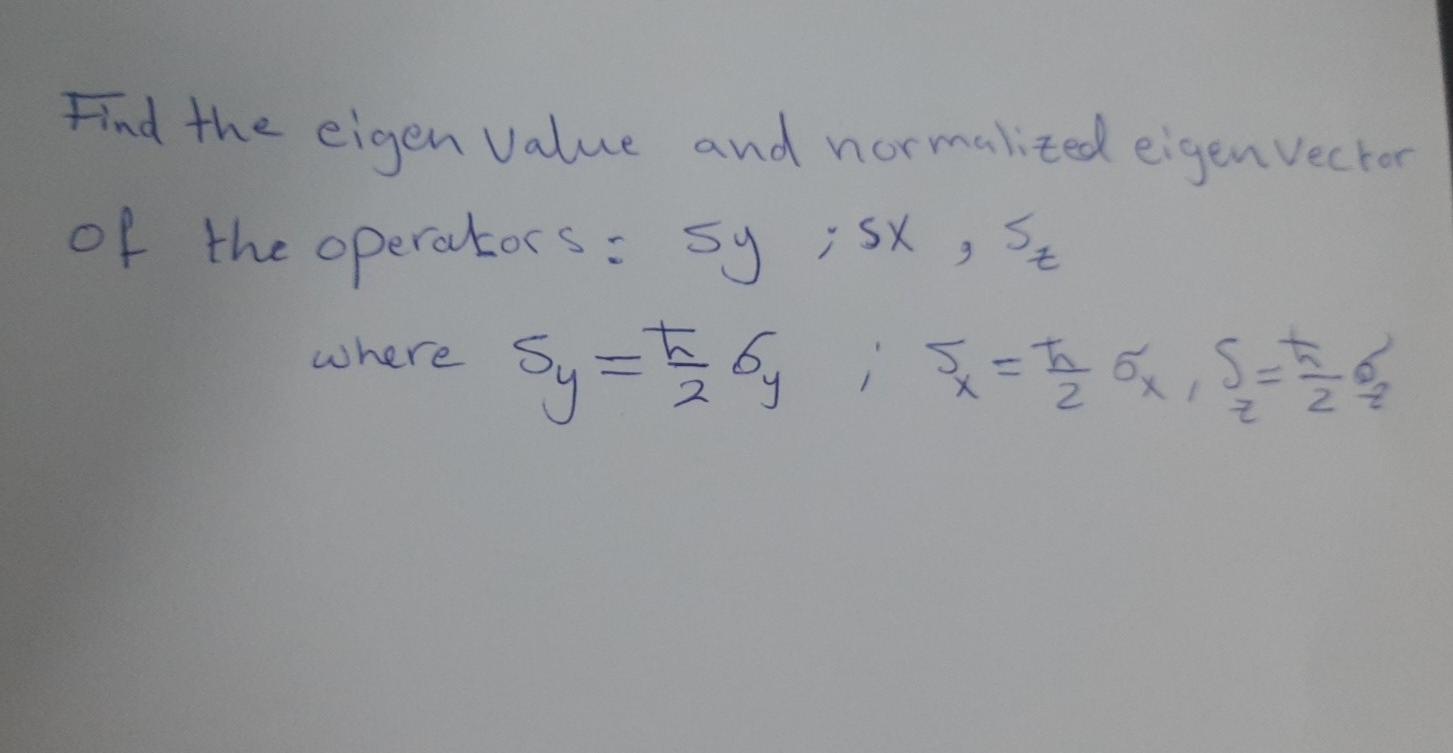 Find the eigen value and normalized eigen vector
of the operators: Sy ; Sx , Sz
where Sy = ħ/2 σy ; Sx = ħ/2 σx , Sz = ħ/2 σz